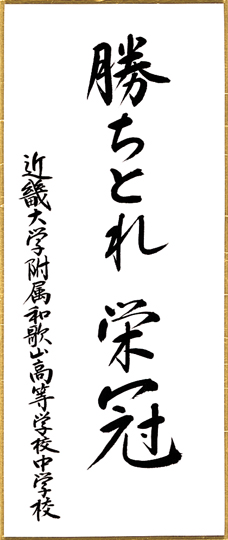 勝ちとれ 栄冠
近畿大学附属和歌山高等学校中学校